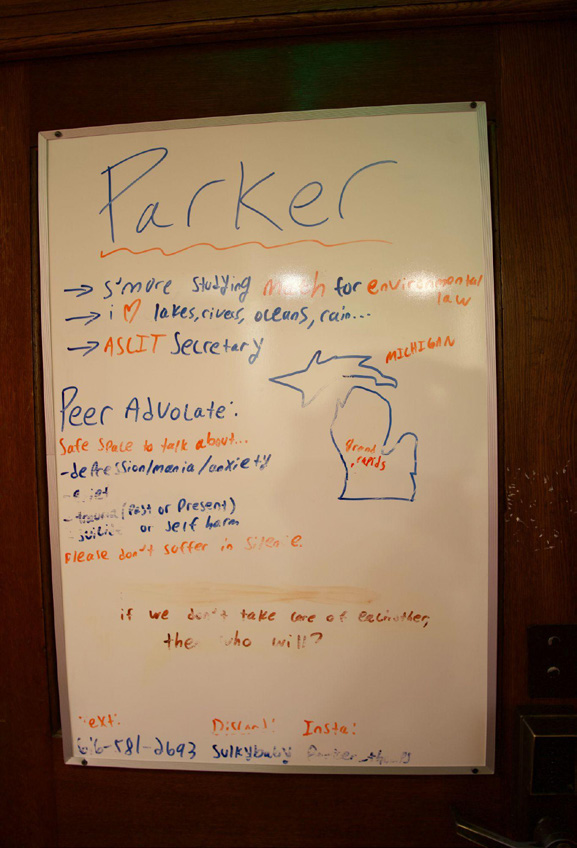 Parker
→ s'more studying mech for environmental
law
→ i ♡ lakes, rivers, oceans, rain...
→ ASCIT Secretary
MICHIGAN
Peer Advocate:
Safe space to talk about...
-depression/mania/anxiety
grand
rapids
-grief
-trauma (Past or Present)
-suicide or self harm
Please don't suffer in silence.
if we don't take care of eachother,
the who will?
Text: Discord: Insta:
616-581-2693 sulkybaby